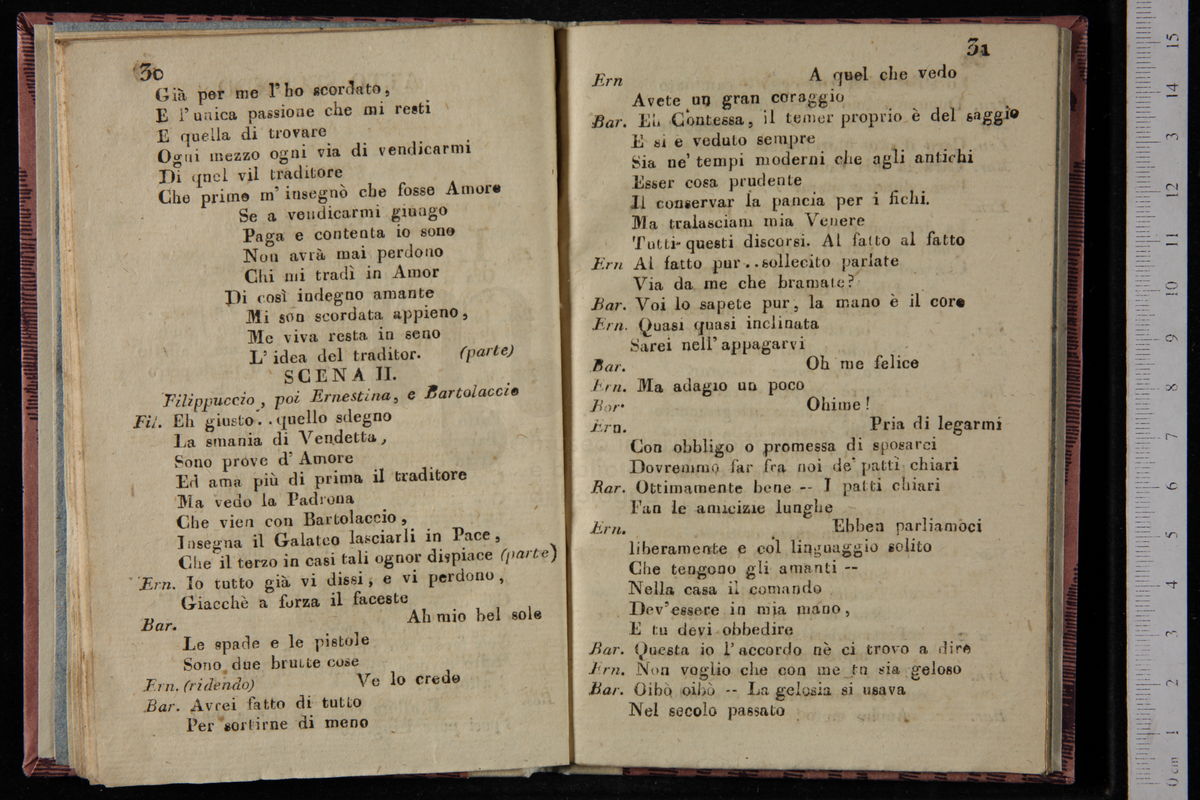 30
Già per me l'ho scordato,
E l'unica passione che mi resti
E quella di trovare
Ogni mezzo ogni via di vendicarmi
Di quel vil traditore
Che primo m'insegnò che fosse Amore
Se a vendicarmi giungo
Paga e contenta io sono
Non avrà mai perdono
Chi mi tradì in Amor
Di così indegno amante
Mi son scordata appieno,
Me viva resta in seno
L'idea del traditor. (parte)
SCENA II.
Filippuccio, poi Ernestina, e Bartolaccio
Fil. Eh giusto..quello sdegno
La smania di Vendetta,
Sono prove d'Amore
Ed ama più di prima il traditore
Ma vedo la Padrona
Che vien con Bartolaccio,
Insegna il Galateo lasciarli in Pace,
Che il terzo in casi tali ognor dispiace (parte)
Ern. Io tutto già vi dissi, e vi perdono,
Giacchè a forza il faceste
Bar. Ah mio bel sole
Le spade e le pistole
Sono due brutte cose
Ern. (ridendo) Ve lo credo
Bar. Avrei fatto di tutto
Per sortirne di meno
31
Ern A quel che vedo
Avete un gran coraggio
Bar. Eh Contessa, il temer proprio è del saggio
E si è veduto sempre
Sia ne' tempi moderni che agli antichi
Esser cosa prudente
Il conservar la pancia per i fichi.
Ma tralasciam mia Venere
Tutti questi discorsi. Al fatto al fatto
Ern Al fatto pur..sollecito parlate
Via da me che bramate?
Bar. Voi lo sapete pur, la mano è il core
Ern. Quasi quasi inclinata
Sarei nell'appagarvi
Bar. Oh me felice
Ern. Ma adagio un poco
Bor. Ohime!
Ern. Pria di legarmi
Con obbligo o promessa di sposarci
Dovremmo far fra noi de' patti chiari
Bar. Ottimamente bene -- I patti chiari
Fan le amicizie lunghe
Ern. Ebben parliamoci
liberamente e col linguaggio solito
Che tengono gli amanti --
Nella casa il comando
Dev'essere in mia mano,
E tu devi obbedire
Bar. Questa io l'accordo nè ci trovo a dire
Ern. Non voglio che con me tu sia geloso
Bar. Oibò oibò -- La gelosia si usava
Nel secolo passato
0 cm 1 2 3 4 5 6 7 8 9 10 11 12 13 14 15